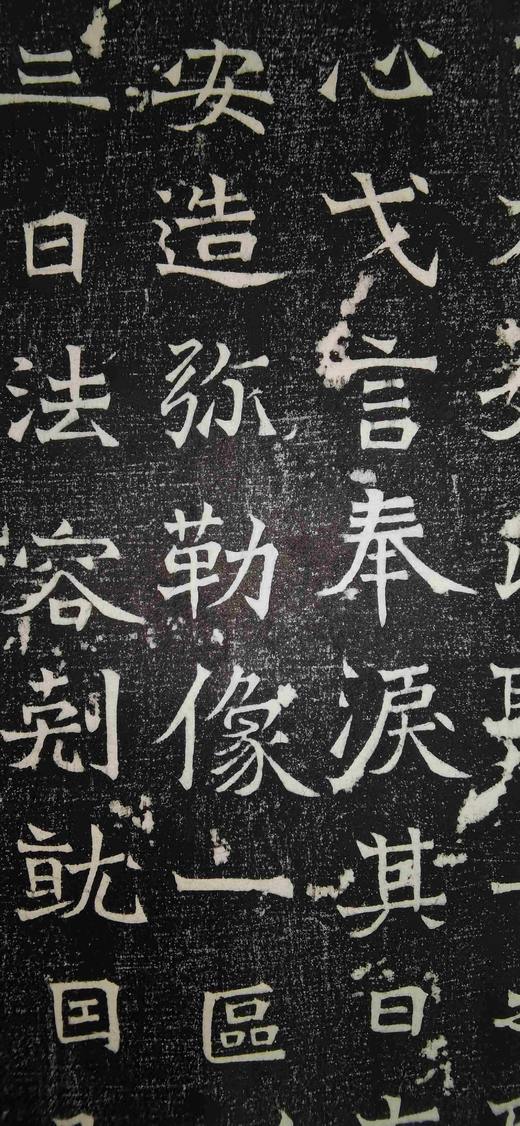 心戈言奉淚其日
安造弥勒像一區
三日法容剋就囙